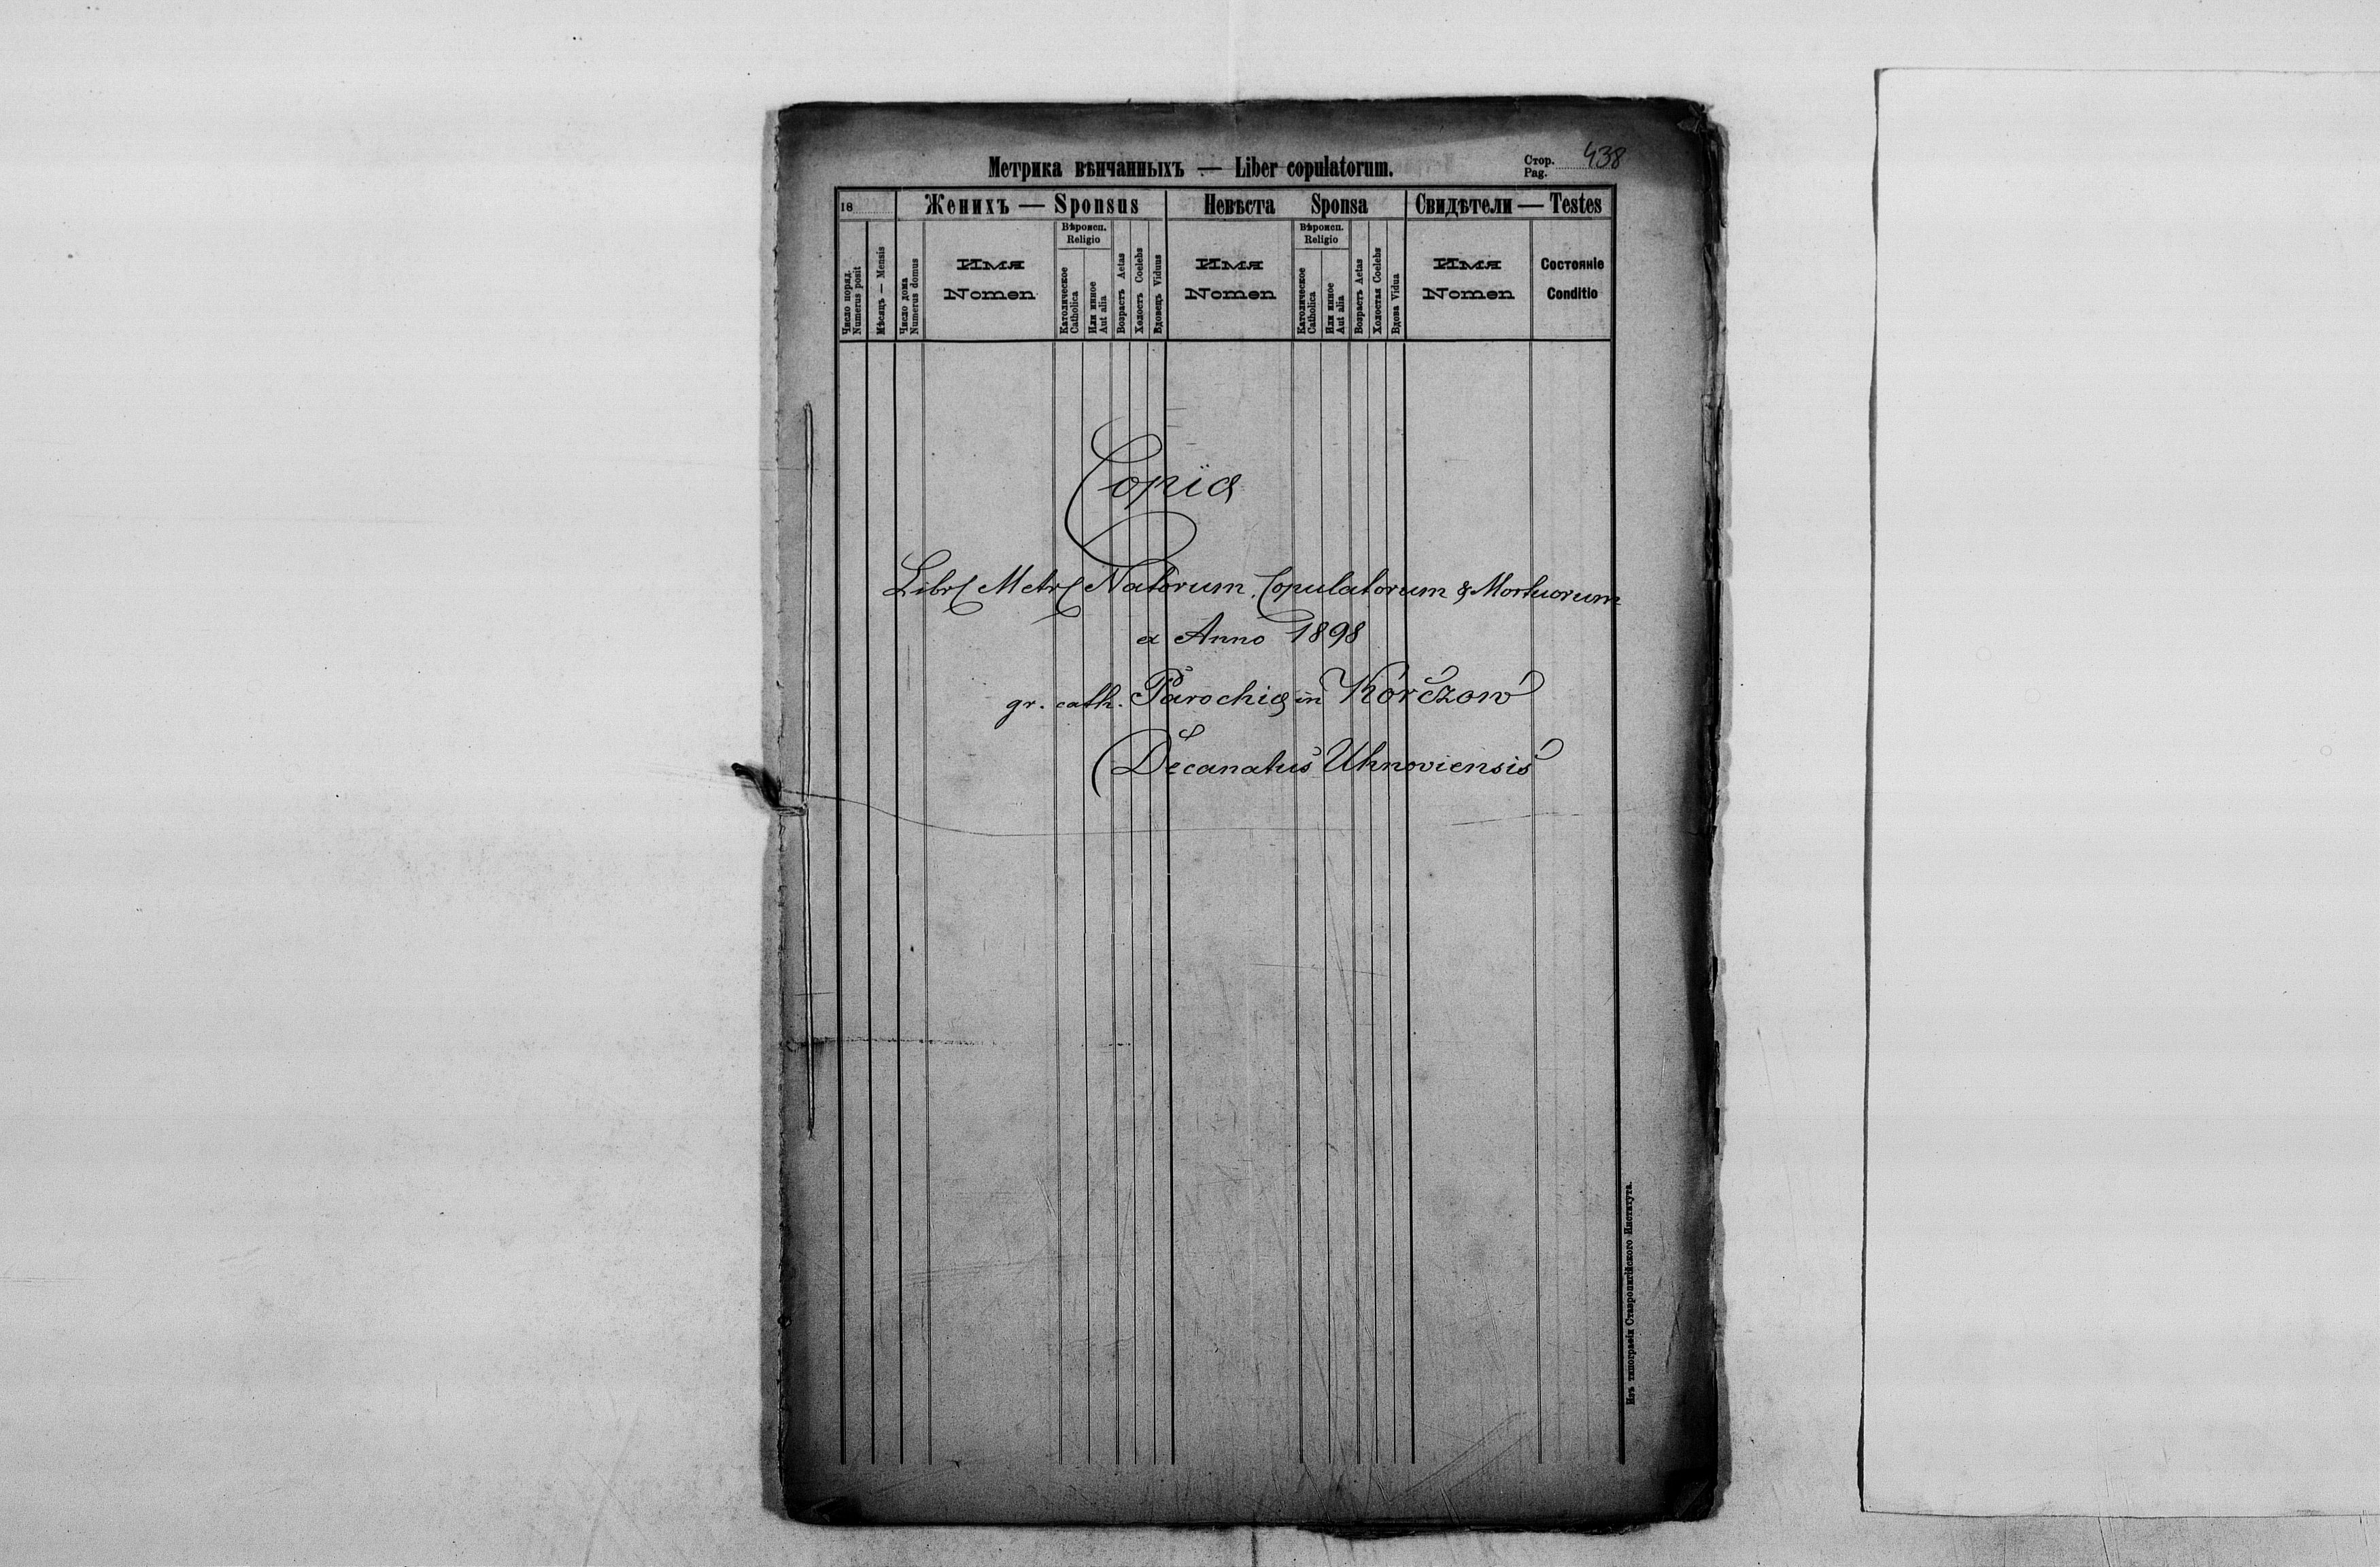 Метрика вѣнчанныхъ — Liber copulatorum.
Стор. 438
Pag.
18
Женихъ — Sponsus
Невѣста Sponsa
Свидѣтели — Testes
Число поряд.
Numerus posit
Мѣсяцъ — Mensis
Число дома
Numerus domus
Имя
Nomen
Вѣроисп.
Religio
Католическое
Catholica
Или инное
Aut alia
Возрастъ Aetas
Холостъ Coelebs
Вдовецъ Viduus
Имя
Nomen
Вѣроисп.
Religio
Католическое
Catholica
Или инное
Aut alia
Возрастъ Aetas
Холостая Coelebs
Вдова Vidua
Имя
Nomen
Состояніе
Conditio
Copia
Natorum, Copulatorum & Mortuorum
Anno 1898
gr. cath. Parochia in Kórczow
Decanatus Uhnoviensis
Изъ типографіи Ставропигійского Института.